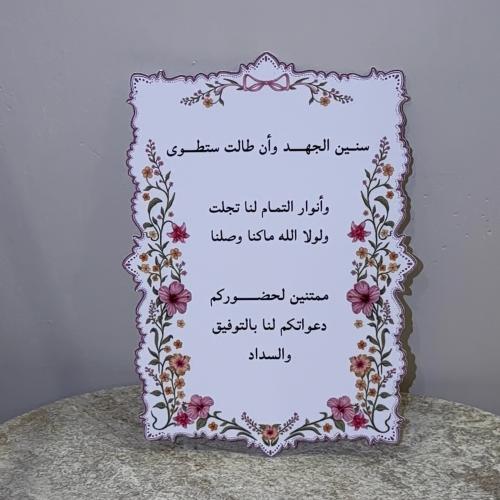 سنـين الجهـد وأن طالت ستطـوى
وأنوار التمام لنا تجلت
ولولا الله ماكنا وصلنا
ممتنين لحضـــوركم
دعواتكم لنا بالتوفيق
والسداد